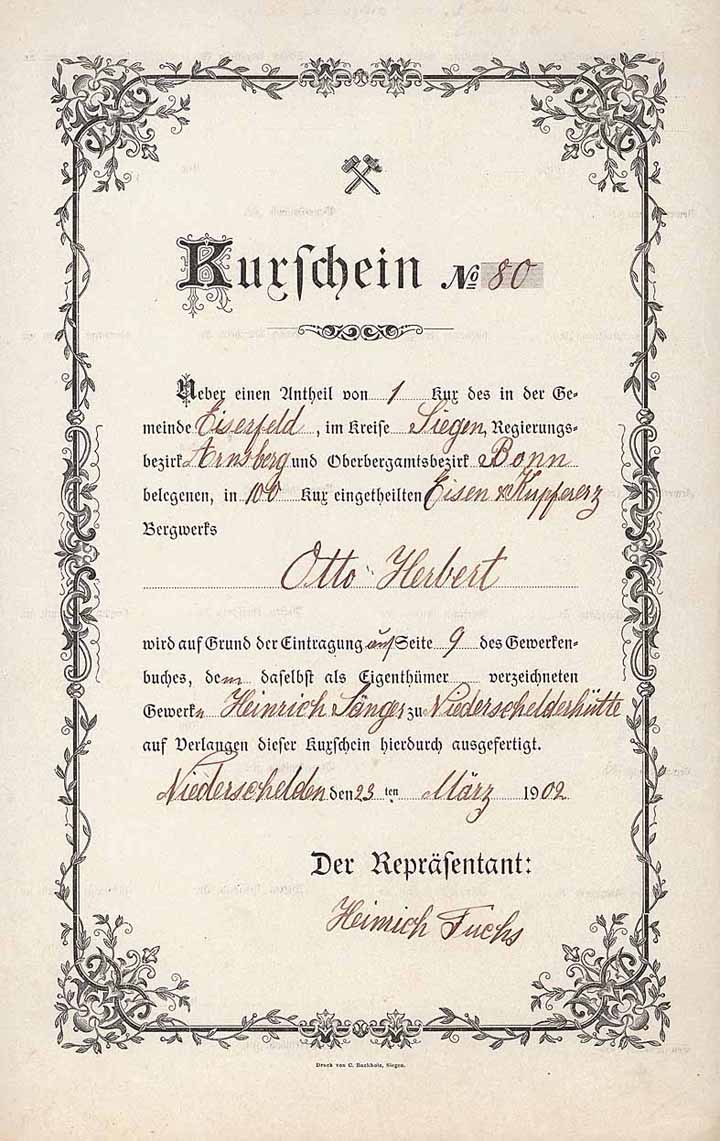 Kuxschein № 80
Ueber einen Antheil von 1 Kux des in der Ge-
meinde Eiserfeld, im Kreise Siegen, Regierungs-
bezirk Arnsberg und Oberbergamtsbezirk Bonn
belegenen, in 100 Kux eingetheilten Eisen & Kupfererz
Bergwerks
Otto Herbert
wird auf Grund der Eintragung auf Seite 9 des Gewerken-
buches, dem daselbst als Eigenthümer verzeichneten
Gewerkn Heinrich Sänger zu Niederschelderhütte
auf Verlangen dieser Kuxschein hierdurch ausgefertigt.
Niederschelden den 23 ten März 1902
Der Repräsentant:
Heinrich Fuchs
Druck von C. Buchholz, Siegen.